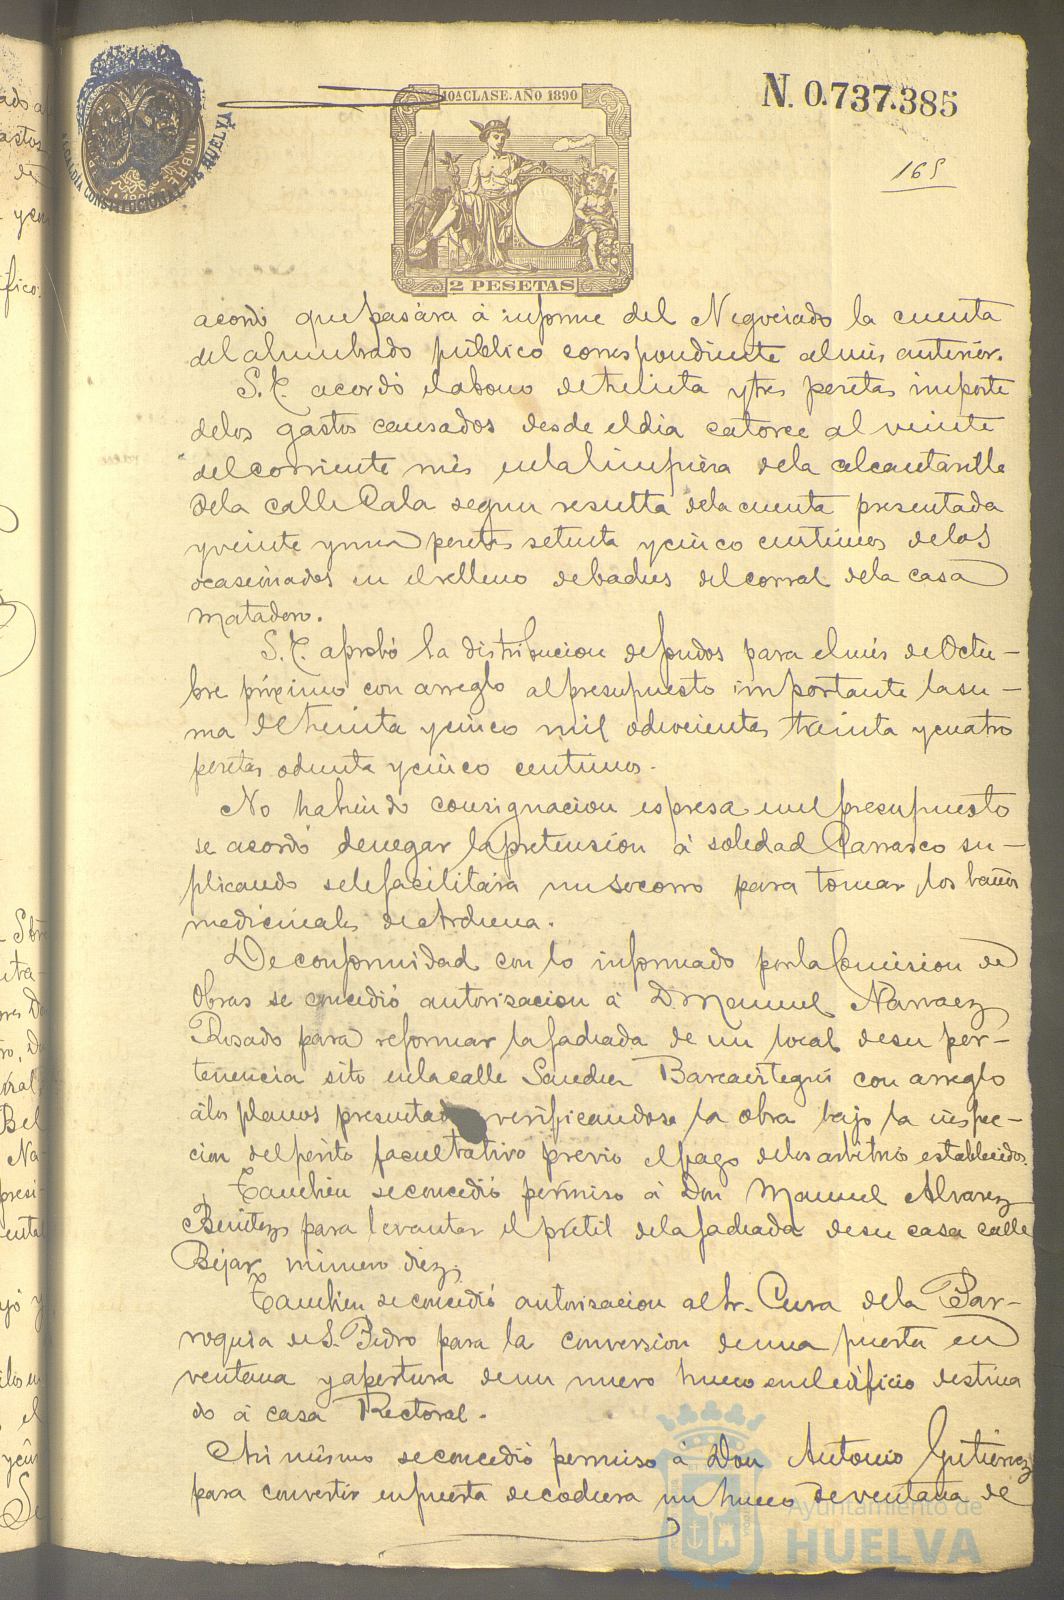 10ª CLASE. AÑO 1890
N. 0.737.385
ALCALDIA CONSTITUCIONAL DE HUELVA
165
2 PESETAS
acordó que pasára á informe del Negociado la cuenta
del alumbrado público correspondiente al mes anterior.
S. E. acordó el abono de treinta y tres pesetas importe
de los gastos causados desde el dia catorce al veinte
del corriente mes en la limpiera de la alcantarilla
de la calle Cala segun resulta de la cuenta presentada
y veinte y una pesetas setenta y cinco centimos de los
ocasionados en el relleno de badies del corral de la casa
matadero.
S. E. aprobó la distribucion de fondos para el mes de Octu-
bre próximo con arreglo al presupuesto importante la su-
ma de treinta y cinco mil doscientas treinta y cuatro
pesetas ochenta y cinco centimos.
No habiendo consignacion espresa en el presupuesto
se acordó denegar la pretension á Soledad Carrasco su-
plicando se le facilitára un socorro para tomar los baños
medicinales de
De conformidad con lo informado por la Comision de
Obras se concedió autorisacion á D. Manuel Narvaez
Rosado para reformar la fachada de un local de su per-
tenencia sito en la calle Sanchez Barcaiztegui con arreglo
á los planos presentad verificandose la obra bajo la inspec-
cion del perito facultativo previo el pago de los arbitrios establecidos.
Tambien se concedió permiso á Don Manuel Alvarez
Benitez para levantar el pretil de la fachada de su casa calle
Béjar número diez.
Tambien se concedió autorisacion al Sr. Cura de la Par-
roquia de S. Pedro para la conversion de una puerta en
ventana y apertura de un nuevo hueco en el edificio destina
do á casa Rectoral.
Asi mismo se concedió permiso á Don Antonio Gutierrez
para convertir en puerta de cochera un hueco de ventana de
Ayuntamiento de
HUELVA